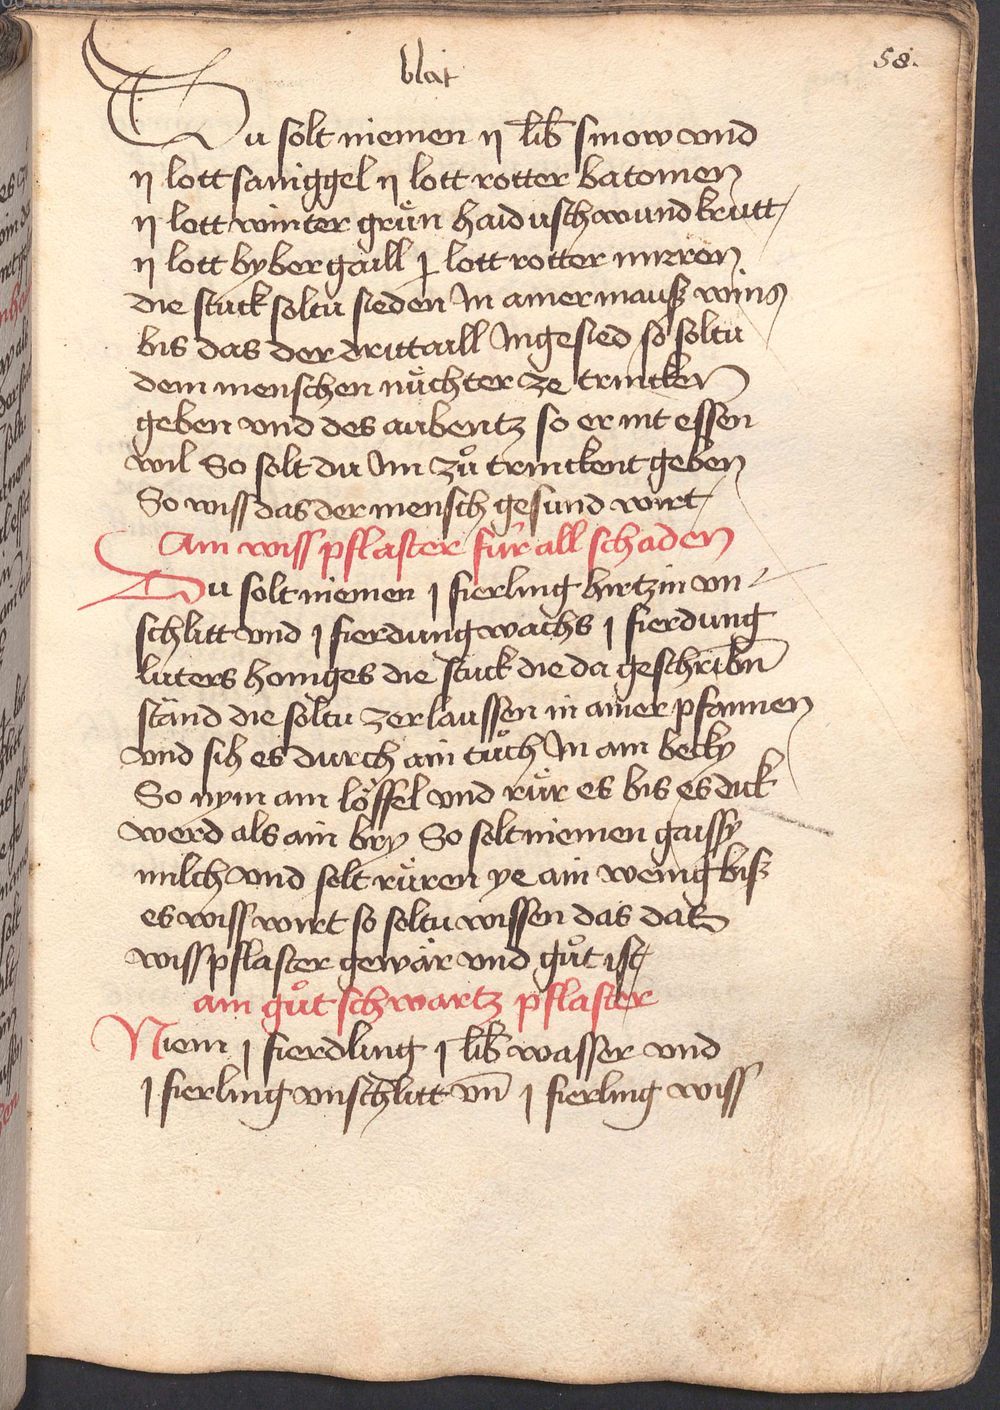 blat
58.
Du solt niemen ij lib sinow vnd
ij lott saniggel ij lott rotter batomen
ij lott winter grůn haidüschwundkrutt
ij lott bybergaill j lott rotter mirren
die stuck soltu sieden In ainer mausz wins
bis das der drittaill Ingesied so soltu
dem menschen nůchter ze trincken
geben vnd des aubentz so er nit essen
wil So solt du Im zů trinckent geben
So wiss das der mensch gesund wirt
Ain wiss pflaster für all schaden
Du solt niemen j fierling hirtzin vn
schlitt vnd j fierdung wachs j fierdung
luters honiges die stuck die da geschribñ
ständ die soltu zerlaussen in ainer pfannen
vnd sih es durch ain tůch In ain becky
So nym ain löffel vnd růr es bis es dick
werd als ain bry So solt niemen gaissy
milch vnd solt růren ye ain wenig bisz
es wiss wirt so soltu wissen das das
wiss pflaster gewär vnd gůt ist
ain gůt schwartz pflaster
Niem j fierdling j lib wasser vnd
j fierling vnschlitt vñ j fierling wiss